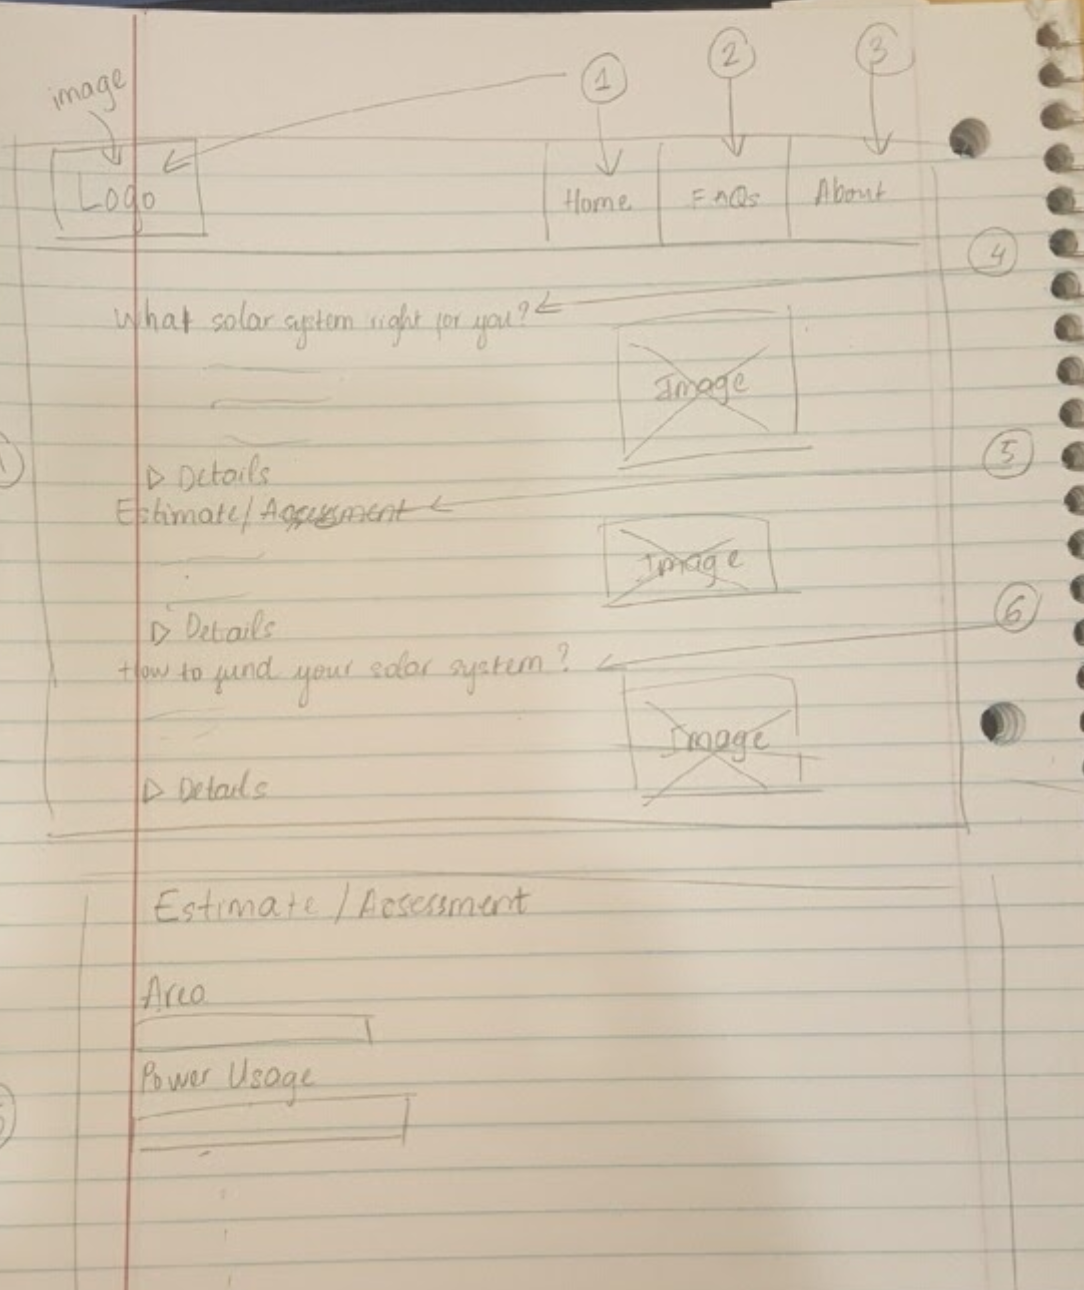 image
1
2
3
Logo
Home
FAQs
About
4
What solar system right for you?
Image
5
▷ Details
Estimate/Assessment
Image
6
▷ Details
How to fund your solar system?
Image
▷ Details
Estimate/Assessment
Area
Power Usage